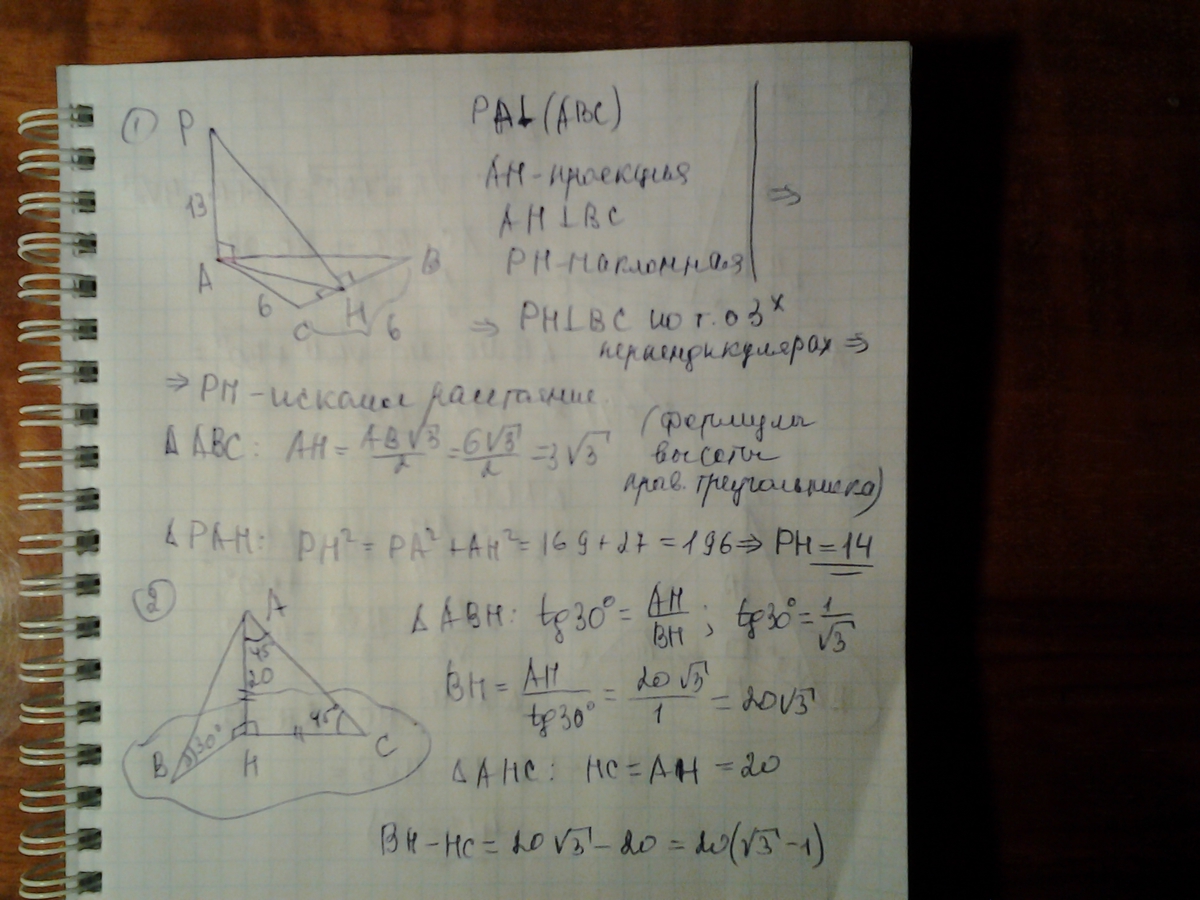 ①
P
13
A
B
6
C
H
6
PA⊥(ABC)
AH-проекция
AH⊥BC
PH-наклонная
⇒
⇒ PH⊥BC по т. о 3ˣ
перпендикулярах ⇒
⇒ PH - искомое расстояние.
Δ ABC: AH = AB√3/2 = 6√3/2 = 3√3 (формулы
высоты
прав. треугольника)
Δ PAH: PH² = PA² + AH² = 169 + 27 = 196 ⇒ PH = 14
②
A
45
20
30°
45°
B
H
C
Δ ABH: tg30° = AH/BH; tg30° = 1/√3
BH = AH/tg30° = 20√3/1 = 20√3
Δ AHC: HC = AH = 20
BH - HC = 20√3 - 20 = 20(√3 - 1)